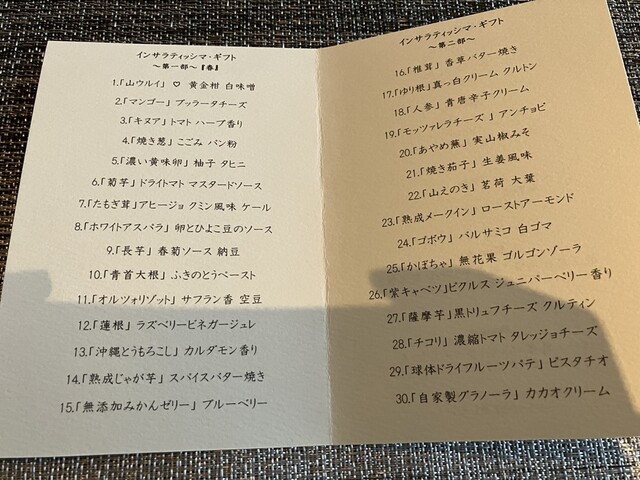 インサラティッシマ・ギフト
～第一部～『春』
1.「山ウルイ」 ♡ 黄金柑 白味噌
2.「マンゴー」 ブッラータチーズ
3.「キヌア」トマト ハーブ香り
4.「焼き葱」こごみ パン粉
5.「濃い黄味卵」柚子 タヒニ
6.「菊芋」ドライトマト マスタードソース
7.「たもぎ茸」アヒージョ クミン風味 ケール
8.「ホワイトアスパラ」卵とひよこ豆のソース
9.「長芋」 春菊ソース 納豆
10.「青首大根」ふきのとうペースト
11.「オルツォリゾット」サフラン香 空豆
12.「蓮根」ラズベリービネガージュレ
13.「沖縄とうもろこし」カルダモン香り
14.「熟成じゃが芋」スパイスバター焼き
15.「無添加みかんゼリー」ブルーベリー
インサラティッシマ・ギフト
～第二部～
16.「椎茸」香草バター焼き
17.「ゆり根」真っ白クリーム クルトン
18.「人参」青唐辛子クリーム
19.「モッツァレラチーズ」アンチョビ
20.「あやめ蕪」実山椒みそ
21.「焼き茄子」生姜風味
22.「山えのき」茗荷 大葉
23.「熟成メークイン」ローストアーモンド
24.「ゴボウ」バルサミコ 白ゴマ
25.「かぼちゃ」無花果 ゴルゴンゾーラ
26.「紫キャベツ」ピクルス ジュニパーベリー香り
27.「薩摩芋」黒トリュフチーズ クルティン
28.「チコリ」濃縮トマト タレッジョチーズ
29.「球体ドライフルーツパテ」ピスタチオ
30.「自家製グラノーラ」カカオクリーム